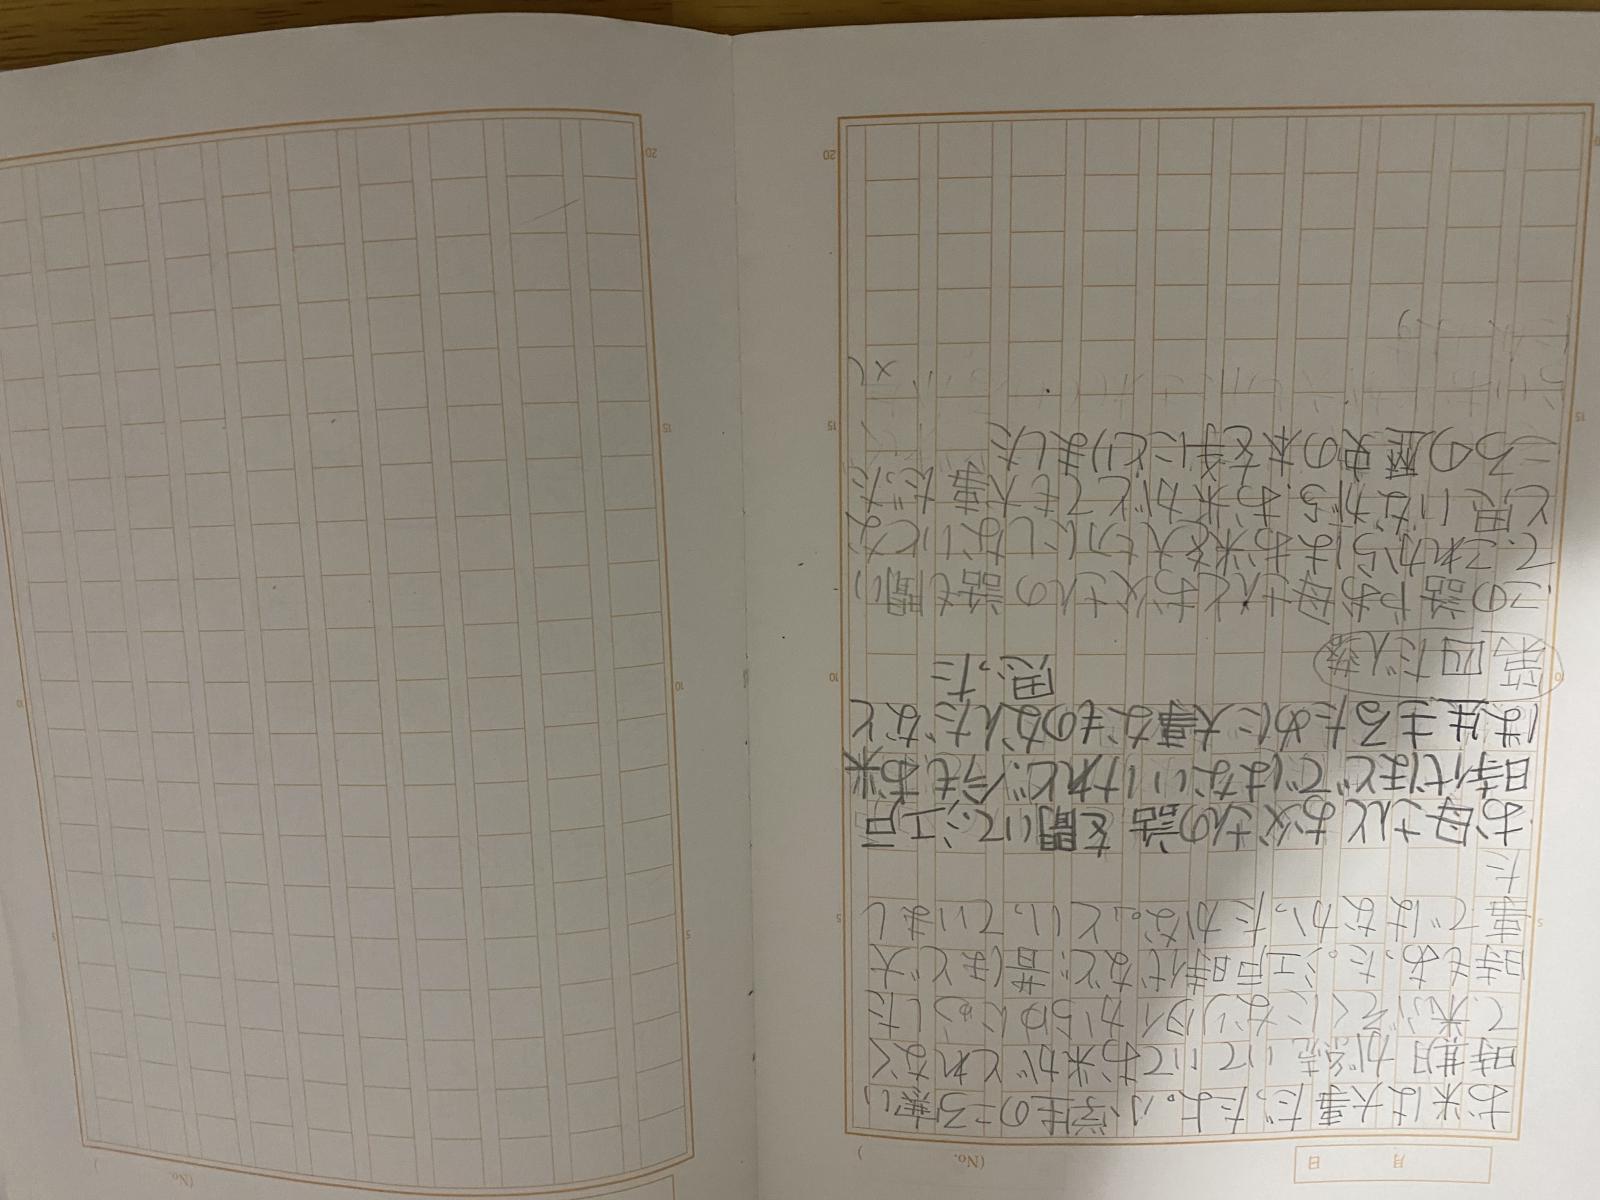 お米は大事だったよ。小学生のころ寒い
時期が続いていてお米がとれなく
て、米ぶそくになりタイからゆにゅうした
時もあった。江戸時代など、昔ほど大
事ではなかったかな。」といっていまし
た
お母さんとお父さんの話を聞いて、江戸
時代ほどではないけれど、今もお米
は生きるために大事なものなんだなと
思った
第四だん落
この話やお母さんとお父さんの話も聞い
て、これからはお米を大切にしないとな
と思いながら、お米がとても大事だった
ころの歴史の本を手にとりました
20
15
10
5
(No. )
月 日
20
15
10
5
(No. )